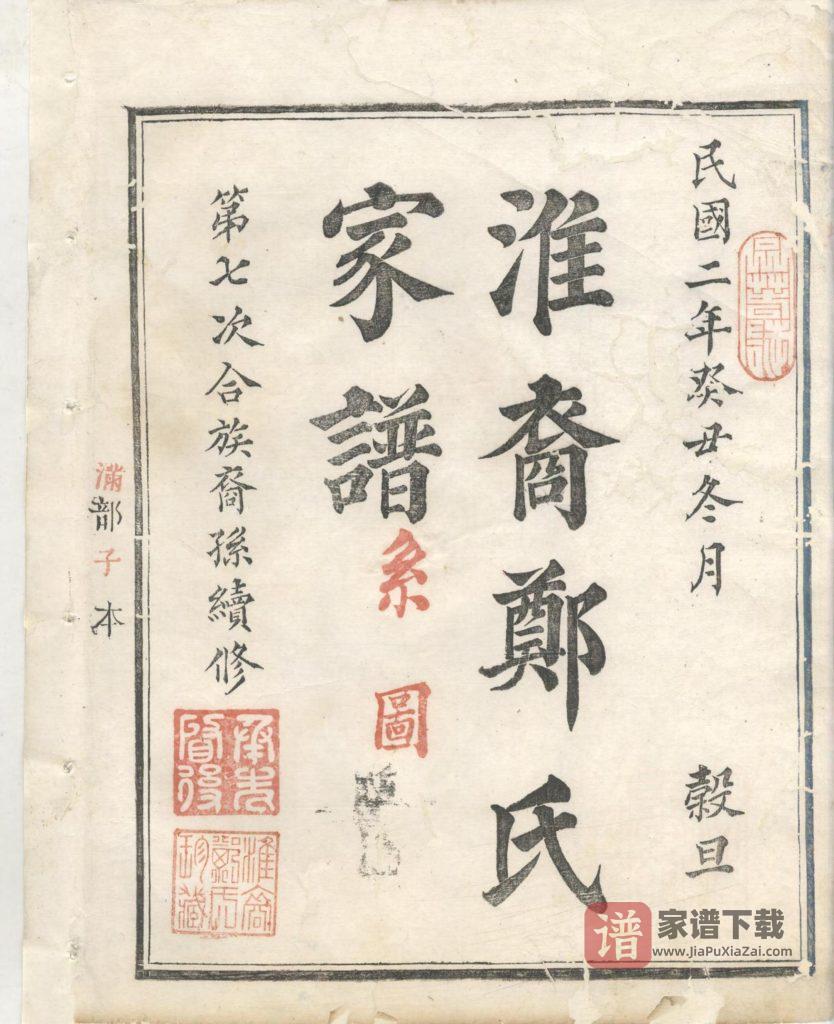 民國二年癸丑冬月 榖旦
淮裔鄭氏
家譜
系圖
第七次合族裔孫續修
承先啓後
淮裔鄭氏珍藏
滿部子本
谱 家谱下载
www.JiaPuXiaZai.com